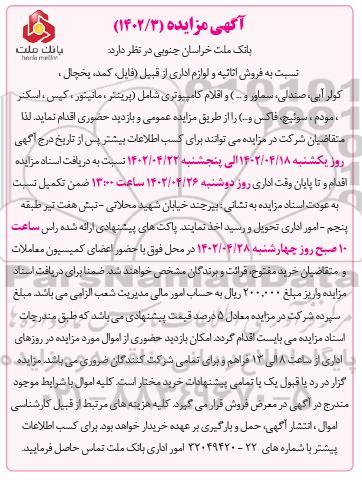 آگهی مزایده (۱۴۰۲/۳)
بانک ملت
bank mellat
بانک ملت خراسان جنوبی در نظر دارد:
نسبت به فروش اثاثیه و لوازم اداری از قبیل (فایل، کمد، یخچال ،
کولر آبی، صندلی، سماور و ...) و اقلام کامپیوتری شامل (پرینتر ، مانیتور ، کیس ، اسکنر
، مودم ، سوئیچ، فاکس و...) را از طریق مزایده عمومی و بازدید حضوری اقدام نماید. لذا
متقاضیان شرکت در مزایده می توانند برای کسب اطلاعات بیشتر پس از تاریخ درج آگهی
روز یکشنبه ۱۴۰۲/۰۴/۱۸ الی پنجشنبه ۱۴۰۲/۰۴/۲۲ نسبت به دریافت اسناد مزایده
اقدام و تا پایان وقت اداری روز دوشنبه ۱۴۰۲/۰۴/۲۶ ساعت ۱۳:۰۰ ضمن تکمیل نسبت
به عودت اسناد مزایده به نشانی : بیرجند خیابان شهید محلاتی - نبش هفت تیر طبقه
پنجم - امور اداری تحویل و رسید اخذ نمایند. پاکت های پیشنهادی ارائه شده راس ساعت
۱۰ صبح روز چهارشنبه ۱۴۰۲/۰۴/۲۸ در محل فوق با حضور اعضای کمیسیون معاملات
و متقاضیان خرید مفتوح، قرائت و برندگان مشخص خواهند شد. ضمنا برای دریافت اسناد
مزایده واریز مبلغ ۲۰۰،۰۰۰ ریال به حساب امور مالی مدیریت شعب الزامی می باشد. مبلغ
سپرده شرکت در مزایده معادل ۵ درصد قیمت پیشنهادی می باشد که طبق مندرجات
اسناد مزایده می بایست اقدام گردد. امکان بازدید حضوری از اموال مورد مزایده در روزهای
اداری از ساعت ۸ الی ۱۳ فراهم و برای تمامی شرکت کنندگان ضروری می باشد. مزایده
گزار در رد یا قبول یک یا تمامی پیشنهادات خرید مختار است. کلیه اموال با شرایط موجود
مندرج در آگهی در معرض فروش قرار می گیرد. کلیه هزینه های مرتبط از قبیل کارشناسی
اموال ، انتشار آگهی، حمل و بارگیری بر عهده خریدار خواهد بود. برای کسب اطلاعات
بیشتر با شماره های ۲۲ - ۳۲۰۴۹۴۲۰ امور اداری بانک ملت تماس حاصل فرمایید.